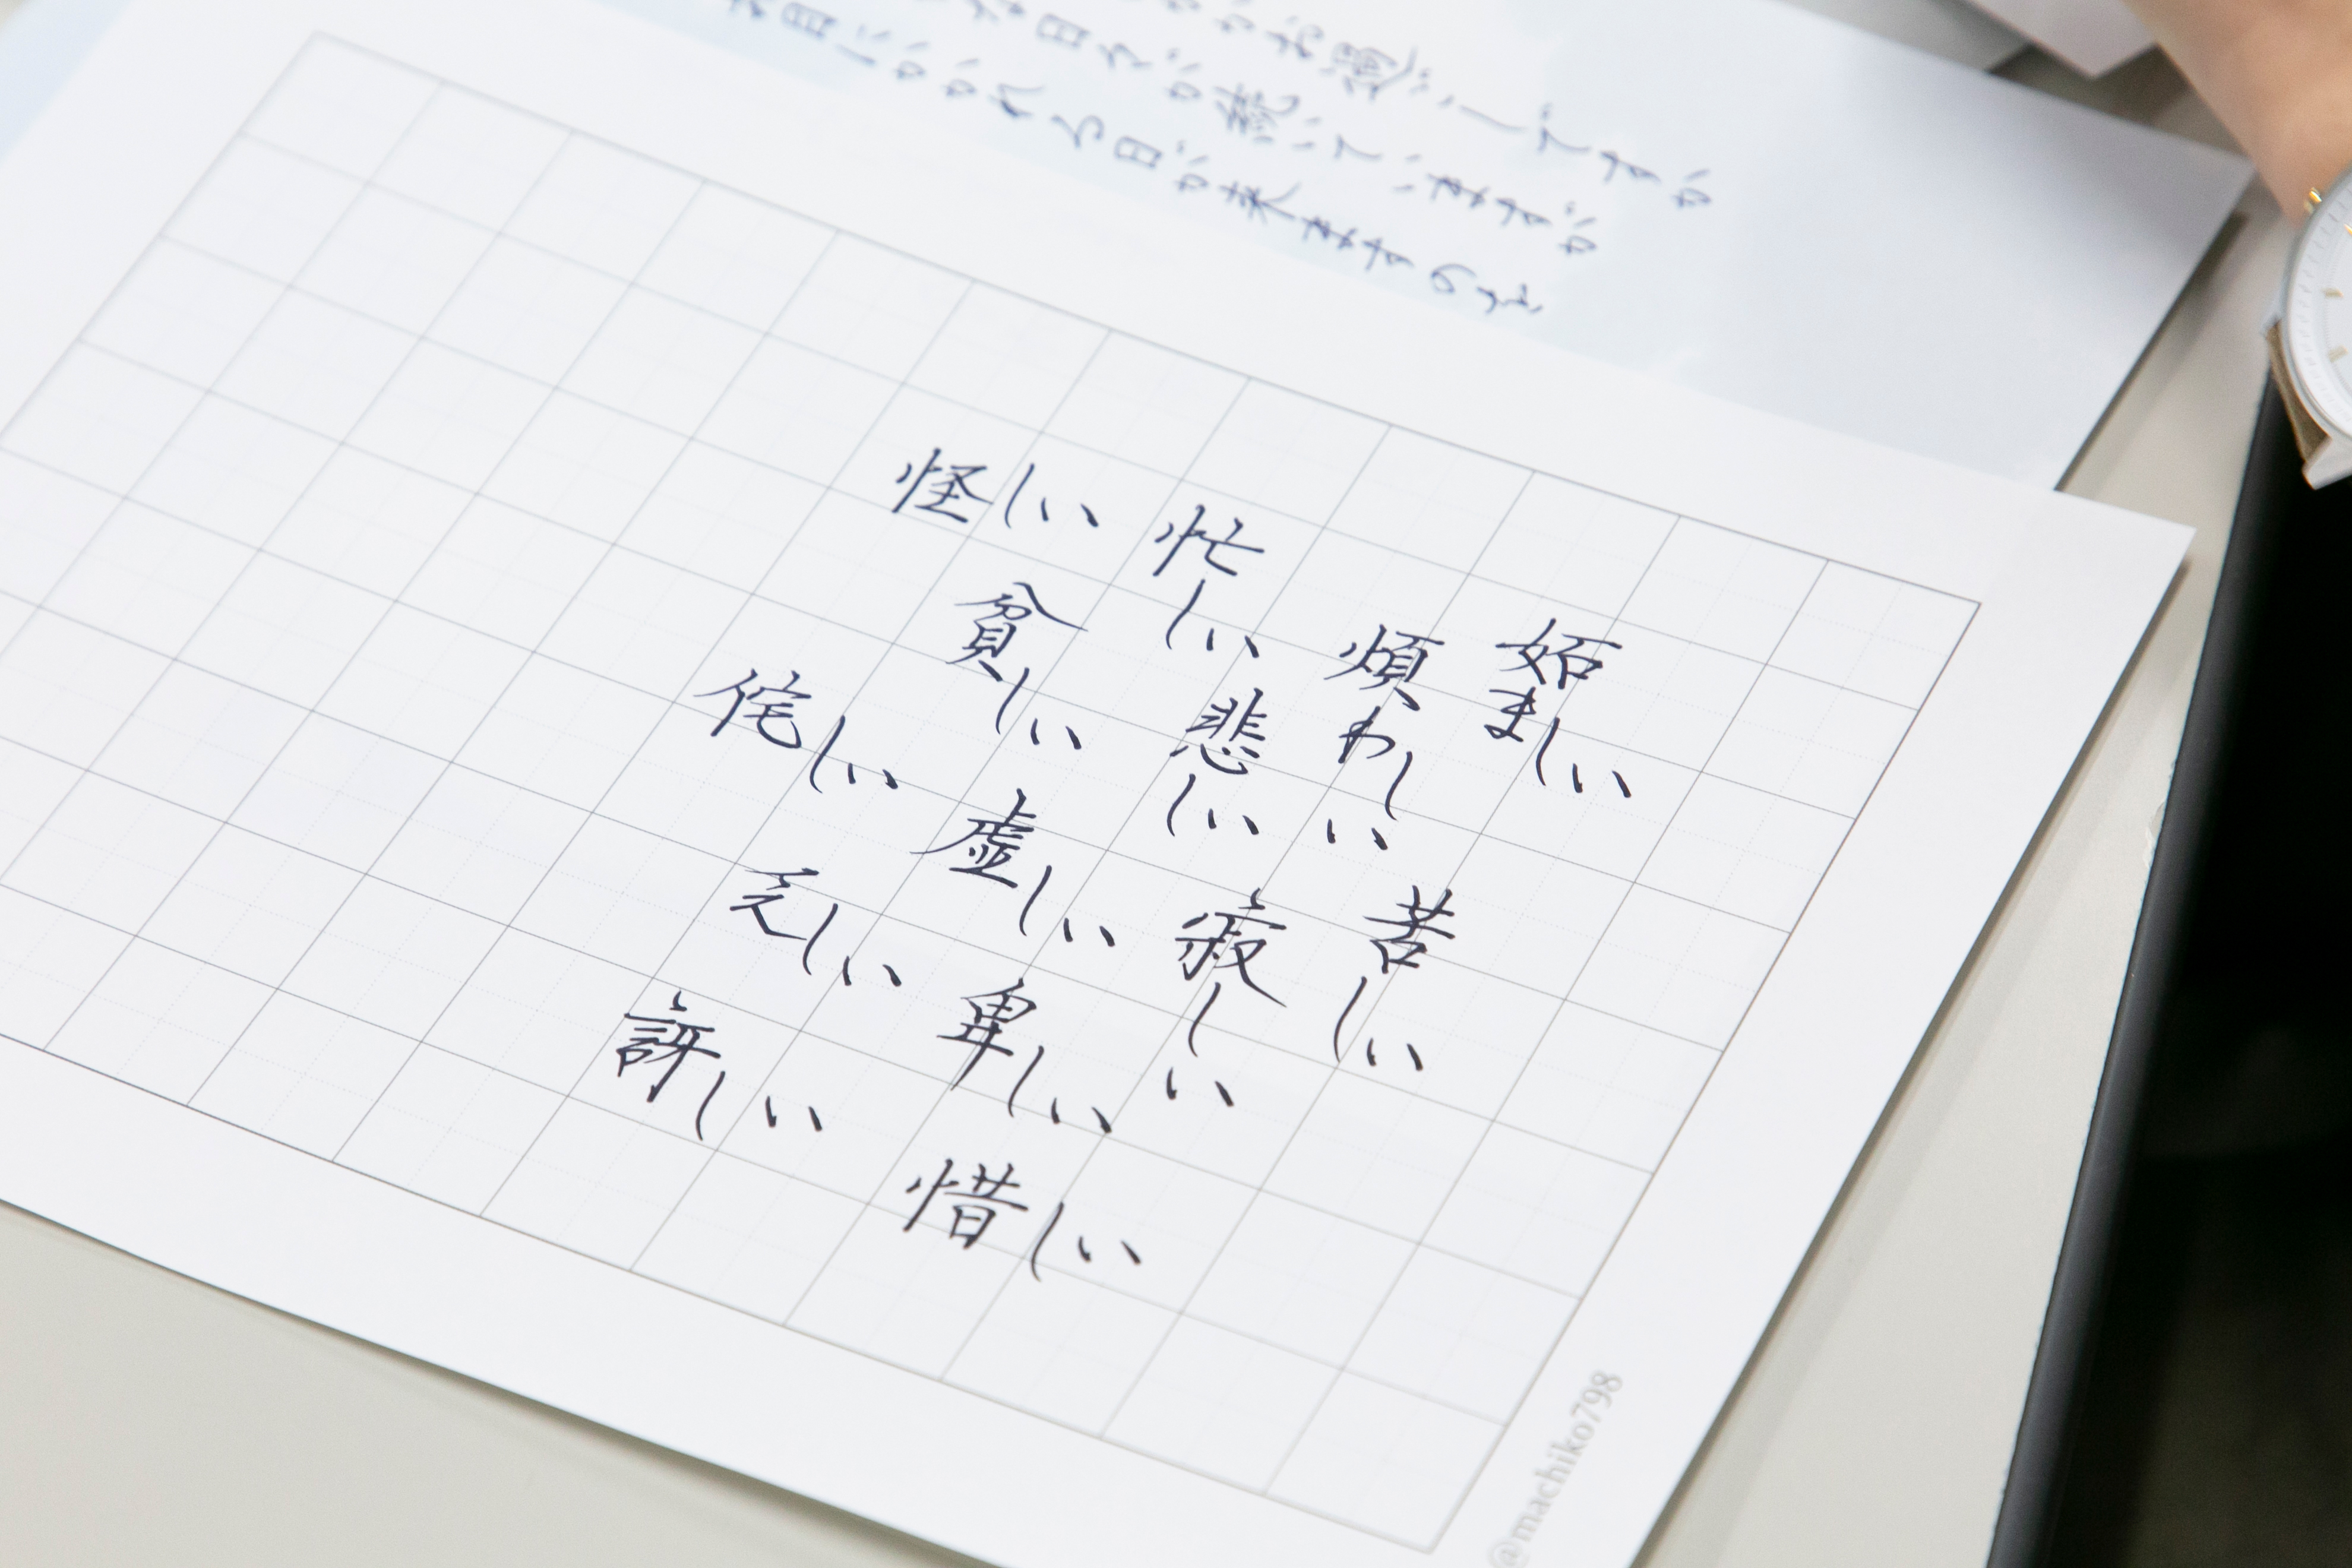 がお過ごしですか
な日々が続いていますが
目にかかれる日が来ますのを
妬ましい
煩わしい 苦しい
忙しい 悲しい 寂しい
怪しい 貧しい 虚しい 卑しい 惜しい
侘しい 乏しい 訝しい
@machiko798